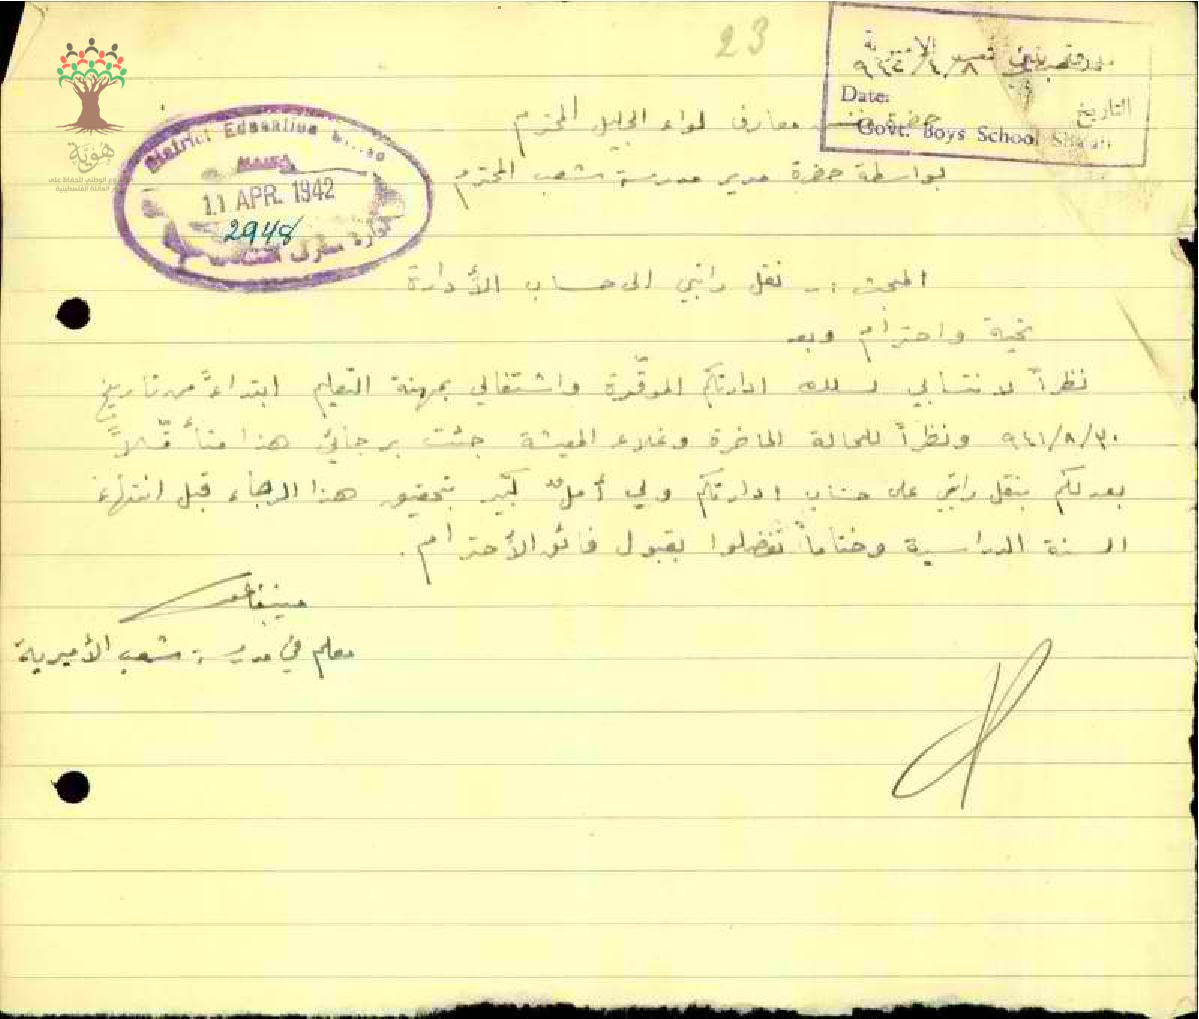 23
مدرسة شعب الأميرية
٩٤٢/٤/٨
Date: التاريخ
Govt. Boys School Shaab
حضرة مفتش معارف لواء الجليل المحترم
بواسطة حضرة مدير مدرسة شعب المحترم
District Education Office
HAIFA
11 APR. 1942
2948
هوية
المبحث :- نقل راتبي الى حساب الأدارة
تحية واحترام وبعد
نظراً لانتسابي لسلك ادارتكم الموقّرة واشتغالي بمهنة التعليم ابتداءً من تاريخ
٩٤١/٨/٣٠ ونظراً للحالة الحاضرة وغلاء المعيشة جئت برجائي هذا متأمّلاً
بعدلكم بنقل راتبي على حساب ادارتكم ولي أملٌ كبير بتحقيق هذا الرجاء قبل انتهاء
السنة الدراسية وختاماً تفضلوا بقبول فائق الأحترام.
معلم في مدرسة شعب الأميرية